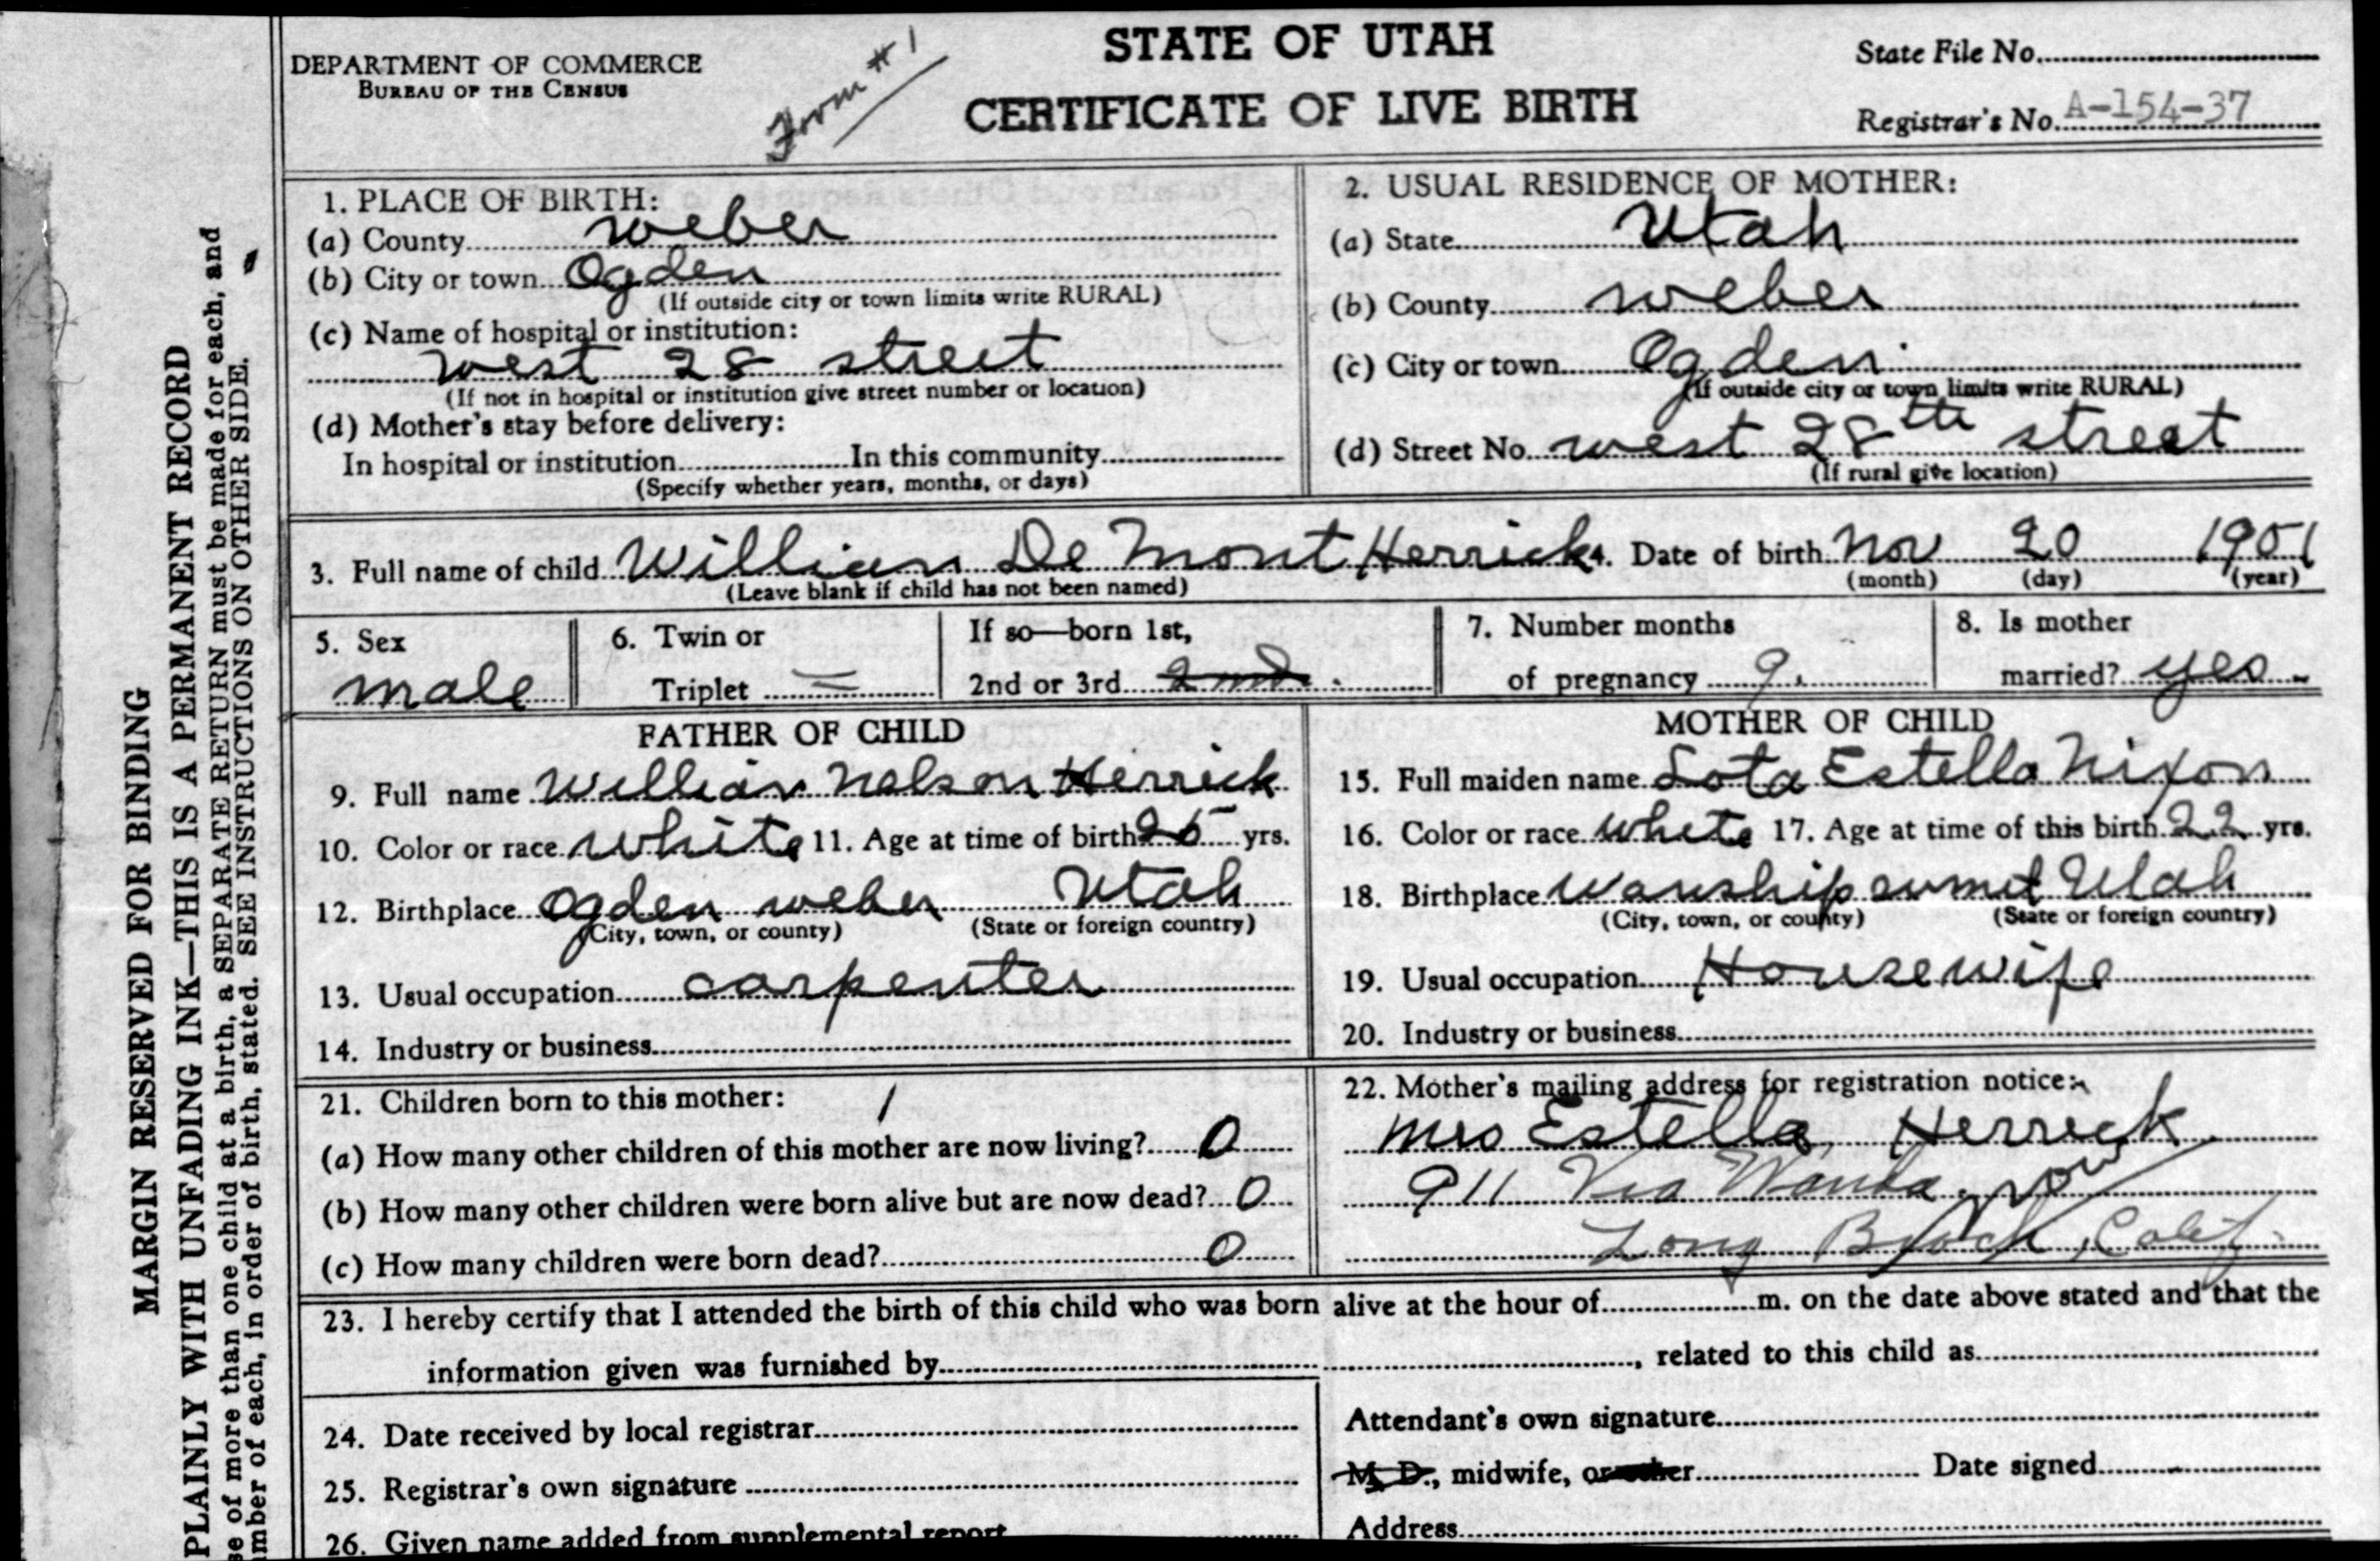 DEPARTMENT OF COMMERCE
BUREAU OF THE CENSUS
Form #1
STATE OF UTAH
CERTIFICATE OF LIVE BIRTH
State File No.
Registrar's No. A-154-37
MARGIN RESERVED FOR BINDING
PLAINLY WITH UNFADING INK—THIS IS A PERMANENT RECORD
se of more than one child at a birth, a SEPARATE RETURN must be made for each, and
mber of each, in order of birth, stated. SEE INSTRUCTIONS ON OTHER SIDE.
1. PLACE OF BIRTH:
(a) County weber
(b) City or town Ogden
(If outside city or town limits write RURAL)
(c) Name of hospital or institution:
west 28 street
(If not in hospital or institution give street number or location)
(d) Mother's stay before delivery:
In hospital or institution In this community
(Specify whether years, months, or days)
2. USUAL RESIDENCE OF MOTHER:
(a) State Utah
(b) County weber
(c) City or town Ogden
(If outside city or town limits write RURAL)
(d) Street No. west 28th street
(If rural give location)
3. Full name of child William De Mont Herrick 4. Date of birth Nov 20 1901
(Leave blank if child has not been named) (month) (day) (year)
5. Sex male
6. Twin or Triplet —
If so—born 1st, 2nd or 3rd 2nd
7. Number months of pregnancy 9
8. Is mother married? yes
FATHER OF CHILD
9. Full name William Nelson Herrick
10. Color or race white 11. Age at time of birth 25 yrs.
12. Birthplace Ogden weber Utah
(City, town, or county) (State or foreign country)
13. Usual occupation carpenter
14. Industry or business
MOTHER OF CHILD
15. Full maiden name Lota Estella Nixon
16. Color or race white 17. Age at time of this birth 22 yrs.
18. Birthplace Wanship sumit Utah
(City, town, or county) (State or foreign country)
19. Usual occupation Housewife
20. Industry or business
21. Children born to this mother: 1
(a) How many other children of this mother are now living? 0
(b) How many other children were born alive but are now dead? 0
(c) How many children were born dead? 0
22. Mother's mailing address for registration notice:
Mrs Estella Herrick
911 Via Wanda now
Long Beach, Calif.
23. I hereby certify that I attended the birth of this child who was born alive at the hour of m. on the date above stated and that the
information given was furnished by , related to this child as
24. Date received by local registrar
25. Registrar's own signature
26. Given name added from supplemental report
Attendant's own signature
M. D., midwife, or other Date signed
Address